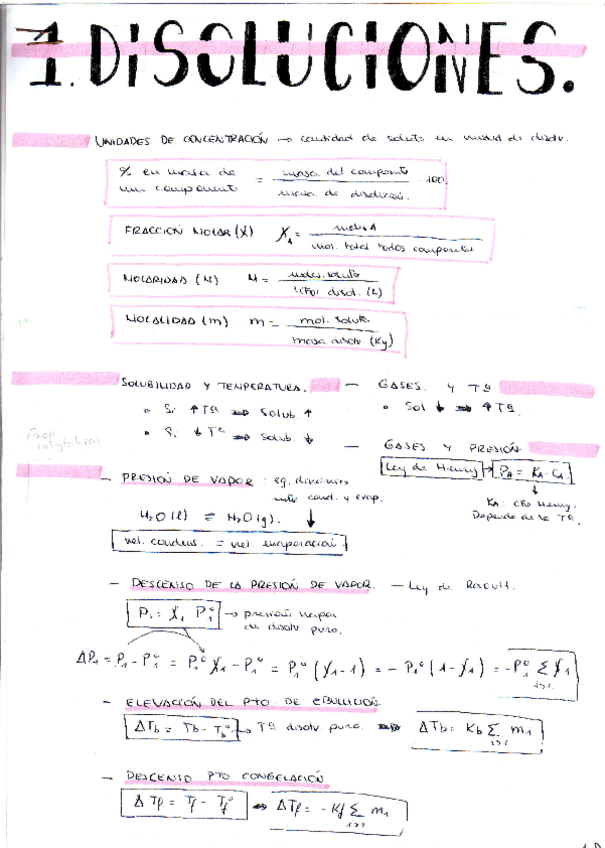 1. DISOLUCIONES.
UNIDADES DE CONCENTRACIÓN → cantidad de soluto en unidad de disolv.
% en masa de un componente = masa del componente / masa de disolución . 100
FRACCIÓN MOLAR (X) X₁ = moles 1 / mol. total todos componentes
MOLARIDAD (M) M = moles soluto / disol. (L)
MOLALIDAD (m) m = mol. soluto / masa disolv (Kg)
SOLUBILIDAD Y TEMPERATURA.
• Si ↑ Tª ⇒ Solub. ↑
• Si ↓ Tª ⇒ Solub. ↓
— GASES Y Tª
• Sol ↓ ⇒ ↑ Tª
— GASES Y PRESIÓN
Ley de Henry → P_A = K_A · C_A
↓
K_A: Cte Henry.
Depende de la Tª.
Prop coligativas
— PRESIÓN DE VAPOR: eq. dinámico
entre cond. y evap.
H₂O (l) ⇌ H₂O (g). ↓
vel. condens. = vel. evaporación.
— DESCENSO DE LA PRESIÓN DE VAPOR. — Ley de Raoult.
P₁ = X₁ P₁° → presión vapor
de disolv. puro.
ΔP₁ = P₁ - P₁° = P₁° X₁ - P₁° = P₁° (X₁ - 1) = - P₁° (1 - X₁) = - P₁° Σ X₁
i>1
— ELEVACIÓN DEL PTO DE EBULLICIÓN.
ΔTb = Tb - Tb° → Tª disolv puro ⇒ ΔTb = Kb Σ m₁
i>1
— DESCENSO PTO CONGELACIÓN
ΔTf = Tf - Tf° ⇒ ΔTf = - Kf Σ m₁
i>1